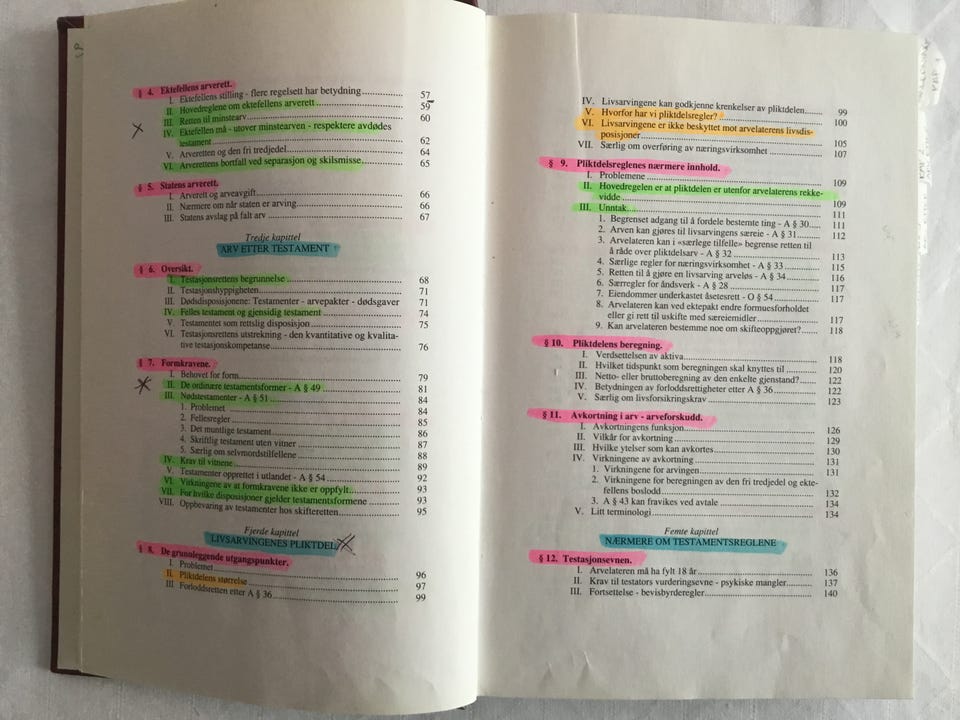 § 4. Ektefellens arverett.
I. Ektefellens stilling - flere regelsett har betydning 57
II. Hovedreglene om ektefellens arverett 59
III. Retten til minstearv 60
IV. Ektefellen må - utover minstearven - respektere avdødes
testament 62
V. Arveretten og den fri tredjedel 64
VI. Arverettens bortfall ved separasjon og skilsmisse 65
§ 5. Statens arverett.
I. Arverett og arveavgift 66
II. Nærmere om når staten er arving 66
III. Statens avslag på falt arv 67
Tredje kapittel
ARV ETTER TESTAMENT
§ 6. Oversikt.
I. Testasjonsrettens begrunnelse 68
II. Testasjonshyppigheten 71
III. Dødsdisposisjonene: Testamenter - arvepakter - dødsgaver 71
IV. Felles testament og gjensidig testament 74
V. Testamentet som rettslig disposisjon 75
VI. Testasjonsrettens utstrekning - den kvantitative og kvalita-
tive testasjonskompetanse 76
§ 7. Formkravene.
I. Behovet for form 79
II. De ordinære testamentsformer - A § 49 81
III. Nødstestamenter - A § 51 84
1. Problemet 84
2. Fellesregler 85
3. Det muntlige testament 86
4. Skriftlig testament uten vitner 87
5. Særlig om selvmordstilfellene 88
IV. Krav til vitnene 89
V. Testamenter opprettet i utlandet - A § 54 92
VI. Virkningene av at formkravene ikke er oppfylt 93
VII. For hvilke disposisjoner gjelder testamentsformene 93
VIII. Oppbevaring av testamenter hos skifteretten 95
Fjerde kapittel
LIVSARVINGENES PLIKTDEL
§ 8. De grunnleggende utgangspunkter.
I. Problemet 96
II. Pliktdelens størrelse 97
III. Forloddsretten etter A § 36 99
IV. Livsarvingene kan godkjenne krenkelser av pliktdelen 99
V. Hvorfor har vi pliktdelsregler? 100
VI. Livsarvingene er ikke beskyttet mot arvelaterens livsdis-
posisjoner 105
VII. Særlig om overføring av næringsvirksomhet 107
§ 9. Pliktdelsreglenes nærmere innhold.
I. Problemene 109
II. Hovedregelen er at pliktdelen er utenfor arvelaterens rekke-
vidde 109
III. Unntak 111
1. Begrenset adgang til å fordele bestemte ting - A § 30 111
2. Arven kan gjøres til livsarvingens særeie - A § 31 112
3. Arvelateren kan i «særlege tilfelle» begrense retten til
å råde over pliktdelsarv - A § 32 113
4. Særlige regler for næringsvirksomhet - A § 33 115
5. Retten til å gjøre en livsarving arveløs - A § 34 116
6. Særregler for åndsverk - A § 28 117
7. Eiendommer underkastet åsetesrett - O § 54 117
8. Arvelateren kan ved ektepakt endre formuesforholdet
eller gi rett til uskifte med særeiemidler 117
9. Kan arvelateren bestemme noe om skifteoppgjøret? 118
§ 10. Pliktdelens beregning.
I. Verdsettelsen av aktiva 118
II. Hvilket tidspunkt som beregningen skal knyttes til 120
III. Netto- eller bruttoberegning av den enkelte gjenstand? 122
IV. Betydningen av forloddsrettigheter etter A § 36 122
V. Særlig om livsforsikringskrav 123
§ 11. Avkortning i arv - arveforskudd.
I. Avkortningens funksjon 126
II. Vilkår for avkortning 129
III. Hvilke ytelser som kan avkortes 130
IV. Virkningene av avkortning 131
1. Virkningene for arvingen 131
2. Virkningene for beregningen av den fri tredjedel og ekte-
fellens boslodd 132
3. A § 43 kan fravikes ved avtale 134
V. Litt terminologi 134
Femte kapittel
NÆRMERE OM TESTAMENTSREGLENE
§ 12. Testasjonsevnen.
I. Arvelateren må ha fylt 18 år 136
II. Krav til testators vurderingsevne - psykiske mangler 137
III. Fortsettelse - bevisbyrderegler 140